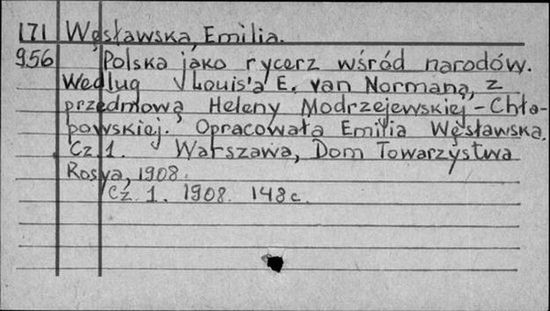 171 Węsławska, Emilia.
956 Polska jako rycerz wśród narodów.
Według Louis'a E. van Normana, z
przedmową Heleny Modrzejewskiej-Chła-
powskiej. Opracowała Emilia Węsławska.
Cz. 1. Warszawa, Dom Towarzystwa
Rosya, 1908.
Cz. 1. 1908. 148 c.